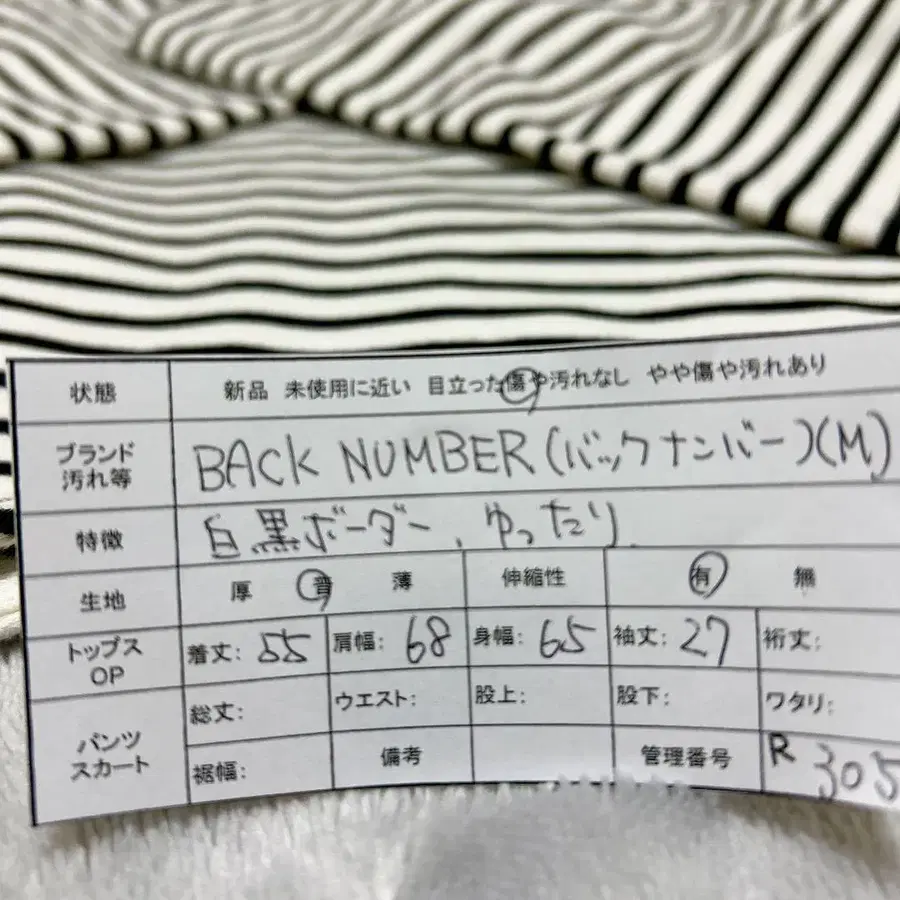 状態 新品 未使用に近い 目立った傷や汚れなし やや傷や汚れあり
ブランド
汚れ等 BACK NUMBER(バックナンバー)(M)
特徴 白黒ボーダー、ゆったり
生地 厚 普 薄 伸縮性 有 無
トップス
OP 着丈: 55 肩幅: 68 身幅: 65 袖丈: 27 裄丈:
総丈: ウエスト: 股上: 股下: ワタリ:
パンツ
スカート
裾幅: 備考 管理番号 R 305